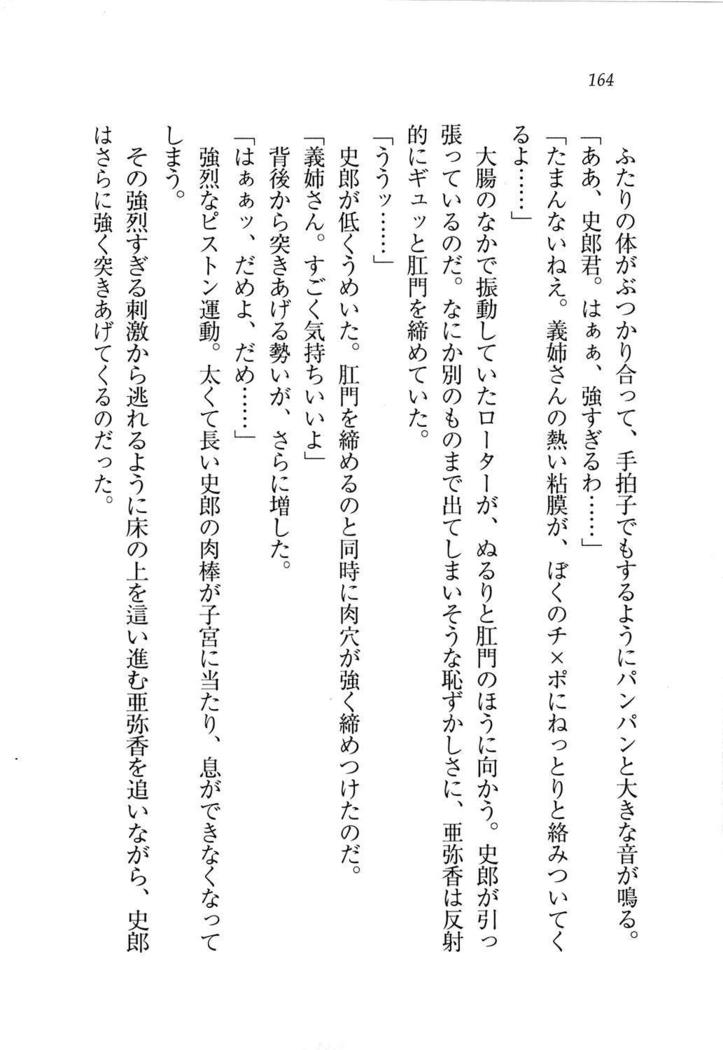 164
ふたりの体がぶつかり合って、手拍子でもするようにパンパンと大きな音が鳴る。
「ああ、史郎君。はぁぁ、強すぎるわ……」
「たまんないねえ。義姉さんの熱い粘膜が、ぼくのチ×ポにねっとりと絡みついてく
るよ……」
大腸のなかで振動していたローターが、ぬるりと肛門のほうに向かう。史郎が引っ
張っているのだ。なにか別のものまで出てしまいそうな恥ずかしさに、亜弥香は反射
的にギュッと肛門を締めていた。
「ううッ……」
史郎が低くうめいた。肛門を締めるのと同時に肉穴が強く締めつけたのだ。
「義姉さん。すごく気持ちいいよ」
背後から突きあげる勢いが、さらに増した。
「はぁぁッ、だめよ、だめ……」
強烈なピストン運動。太くて長い史郎の肉棒が子宮に当たり、息ができなくなって
しまう。
その強烈すぎる刺激から逃れるように床の上を這い進む亜弥香を追いながら、史郎
はさらに強く突きあげてくるのだった。